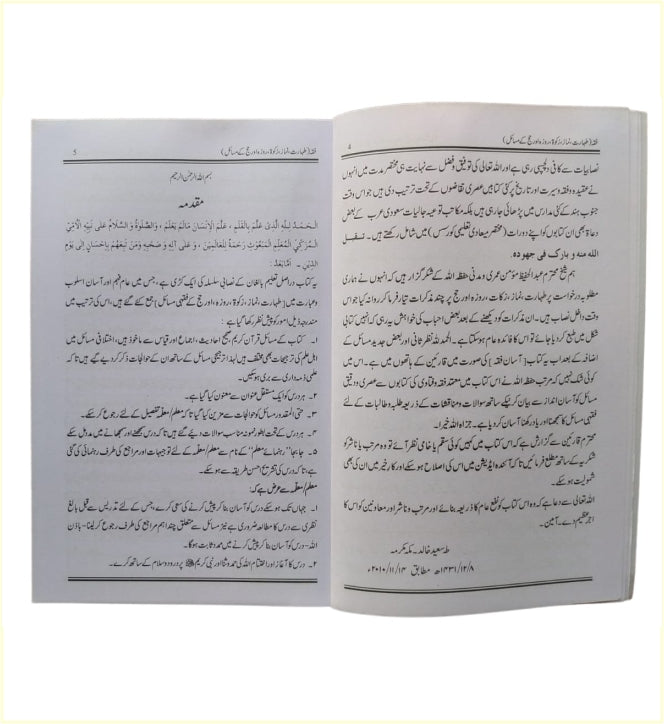 4
فقہ (طہارت، نماز، زکوٰۃ، روزہ، اور حج کے مسائل)
نصابیات سے کافی دلچسپی رہی ہے اور اللہ تعالی کی توفیق و فضل سے نہایت ہی مختصر مدت میں انہوں
نے عقیدہ و فقہ و سیرت اور تاریخ پر کئی کتابیں عصری تقاضوں کے تحت ترتیب دی ہیں جو اس وقت
جنوب ہند کے کئی مدارس میں پڑھائی جا رہی ہیں بلکہ مکاتب توعیہ جالیات سعودی عرب کے بعض
دعاۃ بھی ان کتابوں کو اپنے دورات (مختصر میعادی تعلیمی کورسس) میں شامل رکھتے ہیں۔ فتقبل
الله منه و بارك فى جهوده.
ہم شیخ محترم عبد الحفیظ مؤمن عمری و مدنی حفظہ اللہ کے شکر گزار ہیں کہ انہوں نے ہماری
مطلوبہ درخواست پر طہارت، نماز، زکات، روزہ، اور حج پر چند مذکرات تیار فرما کر روانہ کیا جو اس
وقت داخل نصاب ہیں۔ ان مذکرات کو دیکھنے کے بعد بعض احباب کی خواہش یہ رہی کہ انہیں کتابی
شکل میں طبع کر دیا جائے تو اس کا فائدہ عام ہو سکتا ہے۔ الحمد للہ نظر ثانی اور بعض جدید مسائل کے
اضافہ کے بعد اب یہ کتاب [آسان فقہ] کی صورت میں قارئین کے ہاتھوں میں ہے۔ اس میں
کوئی شک نہیں کہ مرتب حفظہ اللہ نے اس کتاب میں معتمد فقہ و فتاوی کی کتابوں سے عصری و دقیق
مسائل کو آسان انداز سے بیان کرنے کے ساتھ سوالات و مناقشات کے ذریعہ طلبہ و طالبات کے لئے
فقہی مسائل کا سمجھنا اور یاد رکھنا آسان کر دیا ہے۔ جزاہ اللہ خیرا۔
محترم قارئین سے گزارش ہے کہ اس کتاب میں کہیں کوئی سقم یا خامی نظر آئے تو وہ مرتب یا ناشر کو
شکریہ کے ساتھ مطلع فرمائیں تا کہ آئندہ ایڈیشن میں اس کی اصلاح ہو سکے اور کار خیر میں ان کی بھی
شمولیت ہو سکے۔
اللہ تعالی سے دعا ہے کہ وہ اس کتاب کو نفع عام کا ذریعہ بنائے اور مرتب و ناشر اور معاونین کو اس کا
اجر عظیم دے۔ آمین۔
طہ سعید خالد۔ مکہ مکرمہ
۱۴۳۱/۱۲/۸ھ مطابق ۲۰۱۰/۱۱/۱۴ء
فقہ (طہارت، نماز، زکوٰۃ، روزہ، اور حج کے مسائل)
5
بسم اللہ الرحمٰن الرحیم
مقدمہ
الْحَمْدُ لِلّٰهِ الَّذِى عَلَّمَ بِالْقَلَمِ، عَلَّمَ الْإِنْسَانَ مَالَمْ يَعْلَمْ، وَالصَّلٰوةُ وَ السَّلَامُ عَلٰى نَبِيِّهِ الْأُمِّيِّ
الْمُزَكِّى الْمُعَلِّمِ الْمَبْعُوْثِ رَحْمَةً لِلْعَالَمِيْنَ، وَ عَلٰى آلِهِ وَ صَحْبِهِ وَ مَنْ تَبِعَهُمْ بِإِحْسَانٍ إِلٰى يَوْمِ
الدِّيْنِ۔ أَمَّا بَعْدُ:
یہ کتاب دراصل تعلیم بالغان کے نصابی سلسلہ کی ایک کڑی ہے، جس میں عام فہم اور آسان اسلوب
و عبارت میں [طہارت، نماز، زکوٰۃ، روزہ، اور حج کے فقہی مسائل] جمع کئے گئے ہیں، اس کی ترتیب میں
مندرجہ ذیل امور کو پیش نظر رکھا گیا ہے:
۱۔ کتاب کے مسائل قرآن کریم، صحیح احادیث، اجماع اور قیاس سے ماخوذ ہیں، اختلافی مسائل میں
اہل علم کی ترجیحات بھی مختلف ہیں لہذا ترجیحی مسائل کے ساتھ ان کے حوالجات ذکر کر دیے گئے ہیں تا کہ
علمی ذمہ داری سے بری ہو سکیں۔
۲۔ ہر درس کو ایک مستقل عنوان سے معنون کیا گیا ہے۔
۳۔ حتی المقدور مسائل کو حوالجات سے مزین کیا گیا تا کہ معلم/معلمہ تفصیل کے لئے رجوع کر سکے۔
۴۔ ہر درس کے تحت بطور نمونہ مناسب سوالات دیے گئے ہیں تا کہ درس سمجھنے اور سمجھانے میں مدد مل سکے
۵۔ جا بجا "رہنمائے معلم" کے نام سے معلم/معلمہ کے لئے توجیہات اور مراجع کی طرف رہنمائی کی گئی
ہے، تا کہ درس کی تشریح احسن طریقہ سے ہو سکے۔
معلم/معلمہ سے عرض ہے کہ:
۱۔ جہاں تک ہو سکے درس کو آسان بنا کر پیش کرنے کی سعی کرے، جس کے لئے تدریس سے قبل بالغ
نظری سے درس کا مطالعہ ضروری ہے نیز مسائل سے متعلق چند اہم مراجع کی طرف رجوع کر لینا۔ باذن
اللہ۔ درس کو آسان بنا کر پیش کرنے میں ممد و ثابت ہوگا۔
۲۔ درس کا آغاز اور اختتام اللہ کی حمد و ثنا اور نبی کریم ﷺ پر درود و سلام کے ساتھ کرے۔